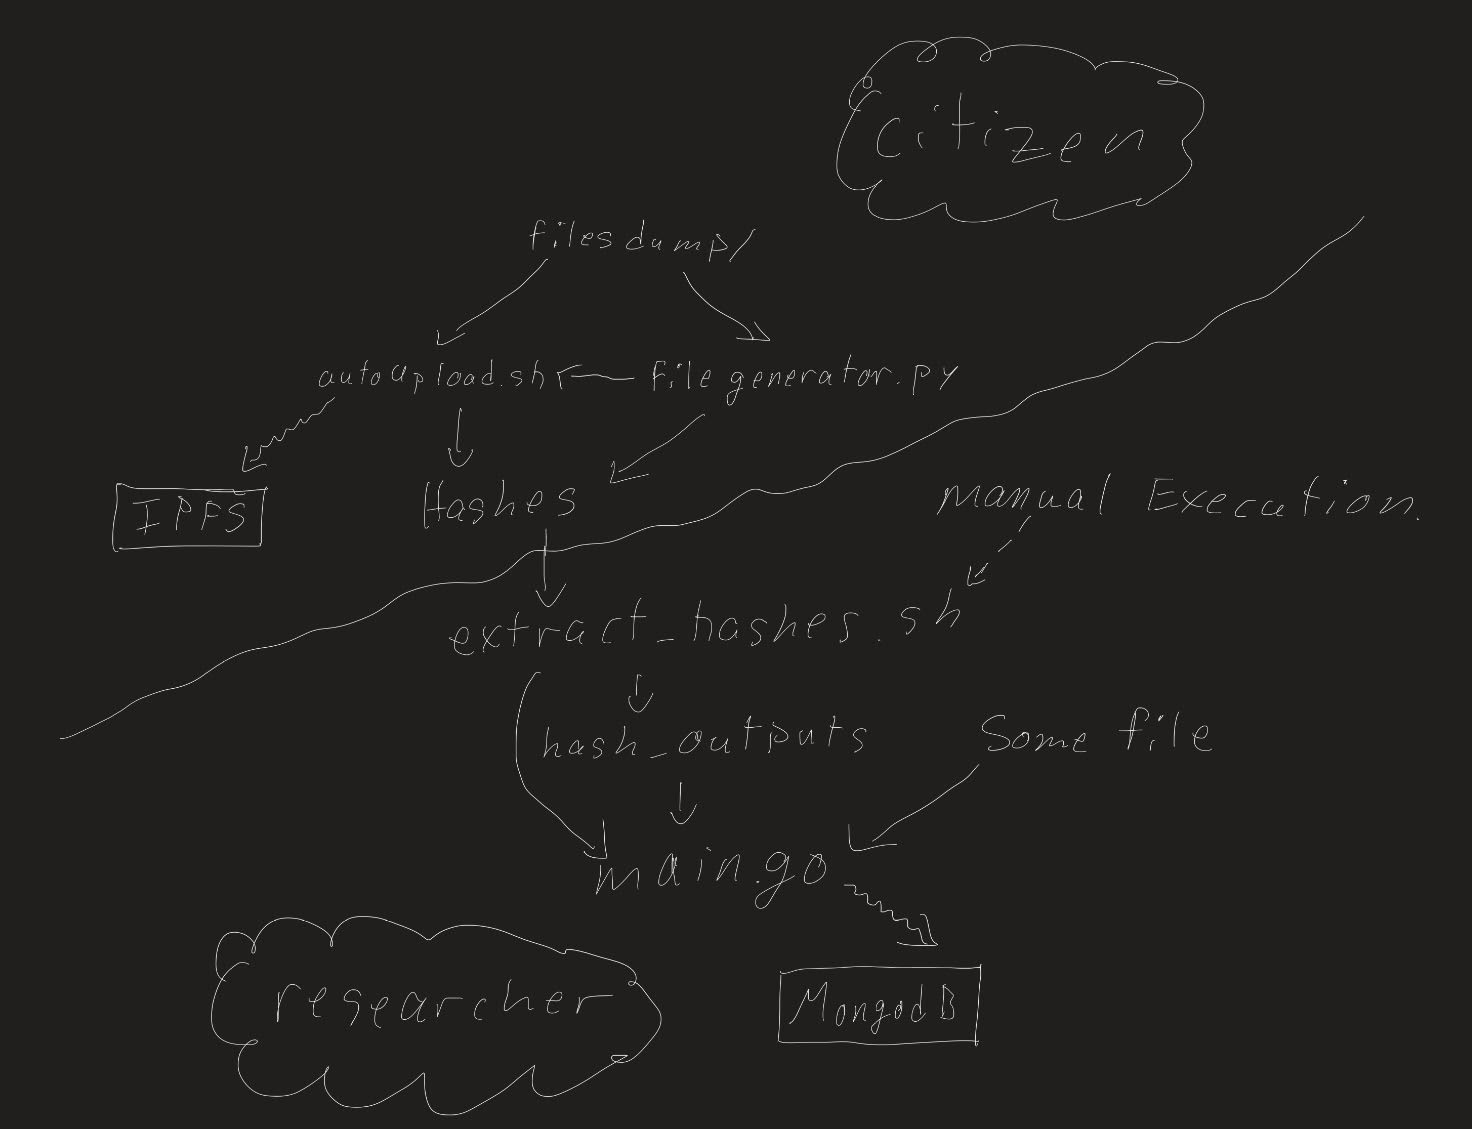 citizen
filesdump/
autoupload.sh
filegenerator.py
IPFS
Hashes
manual Execution.
extract_hashes.sh
hash_outputs
Some file
main.go
researcher
MongodB